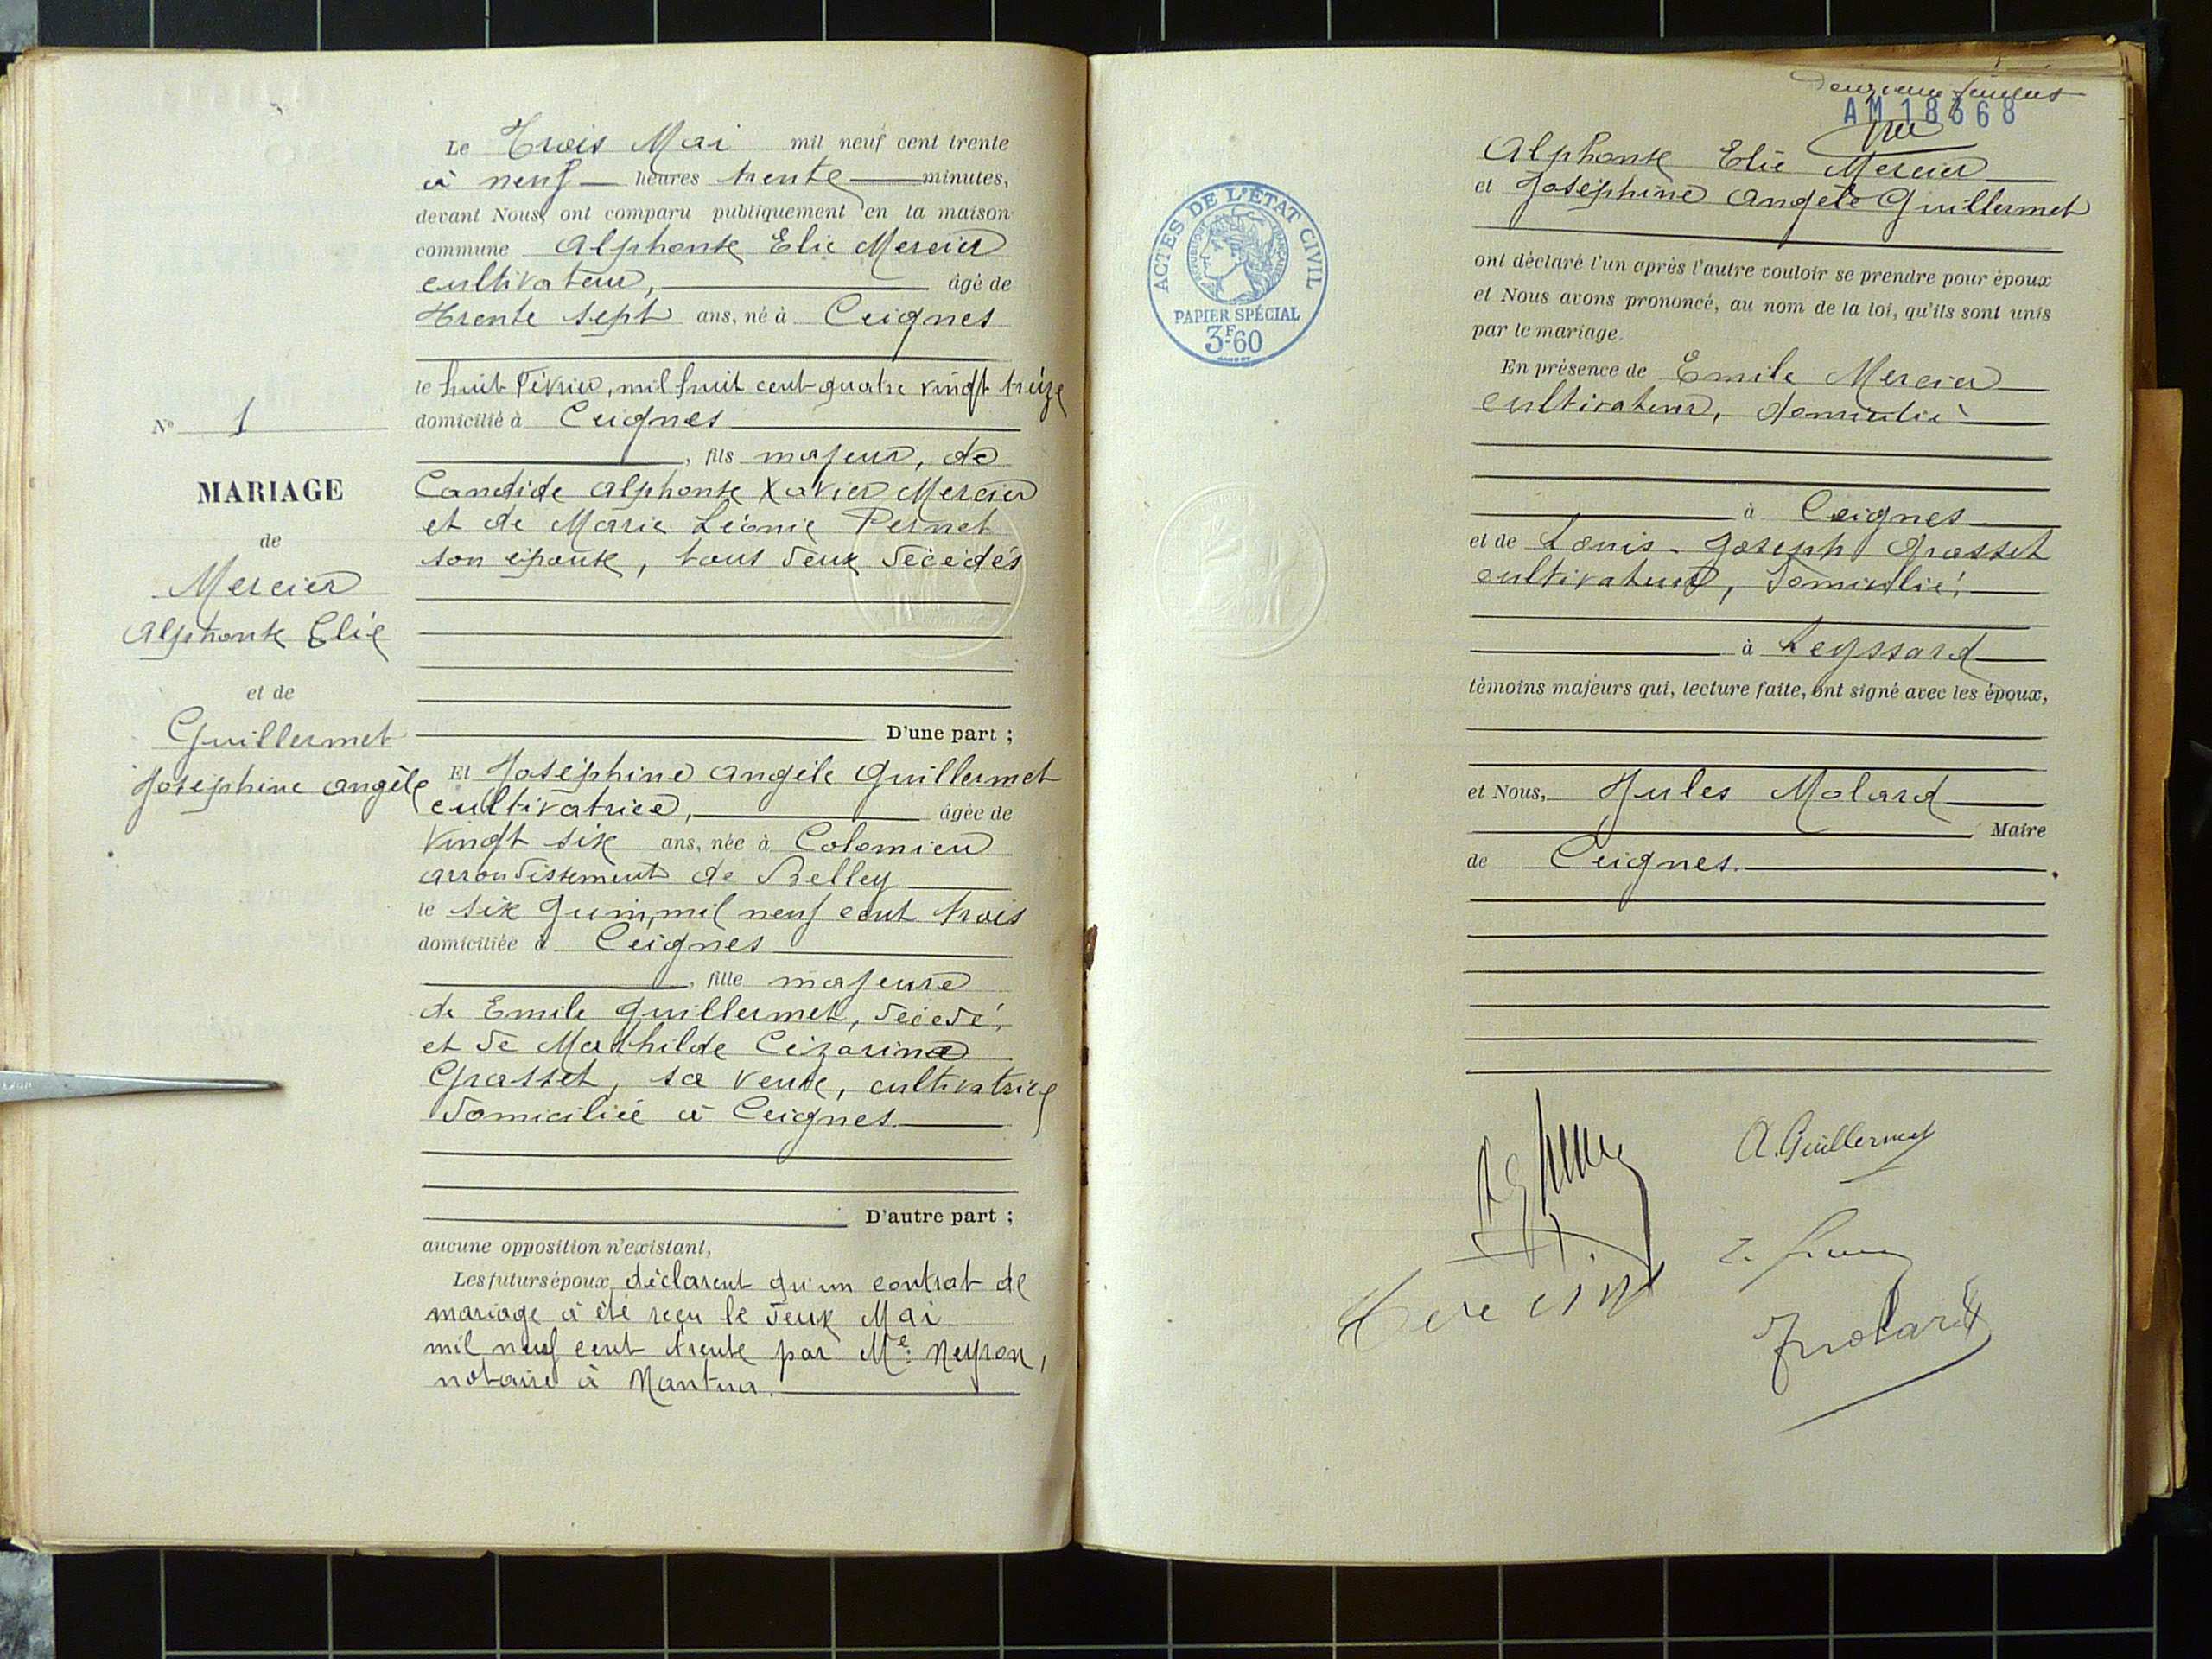 N° 1
MARIAGE
de
Mercier
Alphonse Elie
et de
Guillermet
Joséphine Angèle
Le Trois Mai mil neuf cent trente
à neuf heures trente minutes,
devant Nous, ont comparu publiquement en la maison
commune Alphonse Elie Mercier
cultivateur, âgé de
Trente sept ans, né à Ceignes
le huit Février, mil huit cent quatre vingt treize
domicilié à Ceignes
, fils majeur, de
Candide Alphonse Xavier Mercier
et de Marie Léonie Pernet
son épouse, tous deux décédés
D'une part ;
Et Joséphine Angèle Guillermet
cultivatrice, âgée de
Vingt six ans, née à Colomieu
arrondissement de Belley
le six Juin, mil neuf cent trois
domiciliée à Ceignes
, fille majeure
de Emile Guillermet, décédé,
et de Mathilde Cézarine
Grasset, sa veuve, cultivatrice
domiciliée à Ceignes.
D'autre part ;
aucune opposition n'existant,
Les futurs époux déclarent qu'un contrat de
mariage a été reçu le deux Mai
mil neuf cent trente par Me. Neyron,
notaire à Nantua.
Deuxième feuillet
AM 18368
Alphonse Elie Mercier
et Joséphine Angèle Guillermet
ont déclaré l'un après l'autre vouloir se prendre pour époux
et Nous avons prononcé, au nom de la loi, qu'ils sont unis
par le mariage.
En présence de Emile Mercier
cultivateur, domicilié
à Ceignes
et de Louis-Joseph Grasset
cultivateur, domicilié
à Leyssard
témoins majeurs qui, lecture faite, ont signé avec les époux,
et Nous, Jules Molard
Maire
de Ceignes.
ACTES DE L'ÉTAT CIVIL
PAPIER SPÉCIAL
3F60
A. Guillermet
Mercier
JMolard